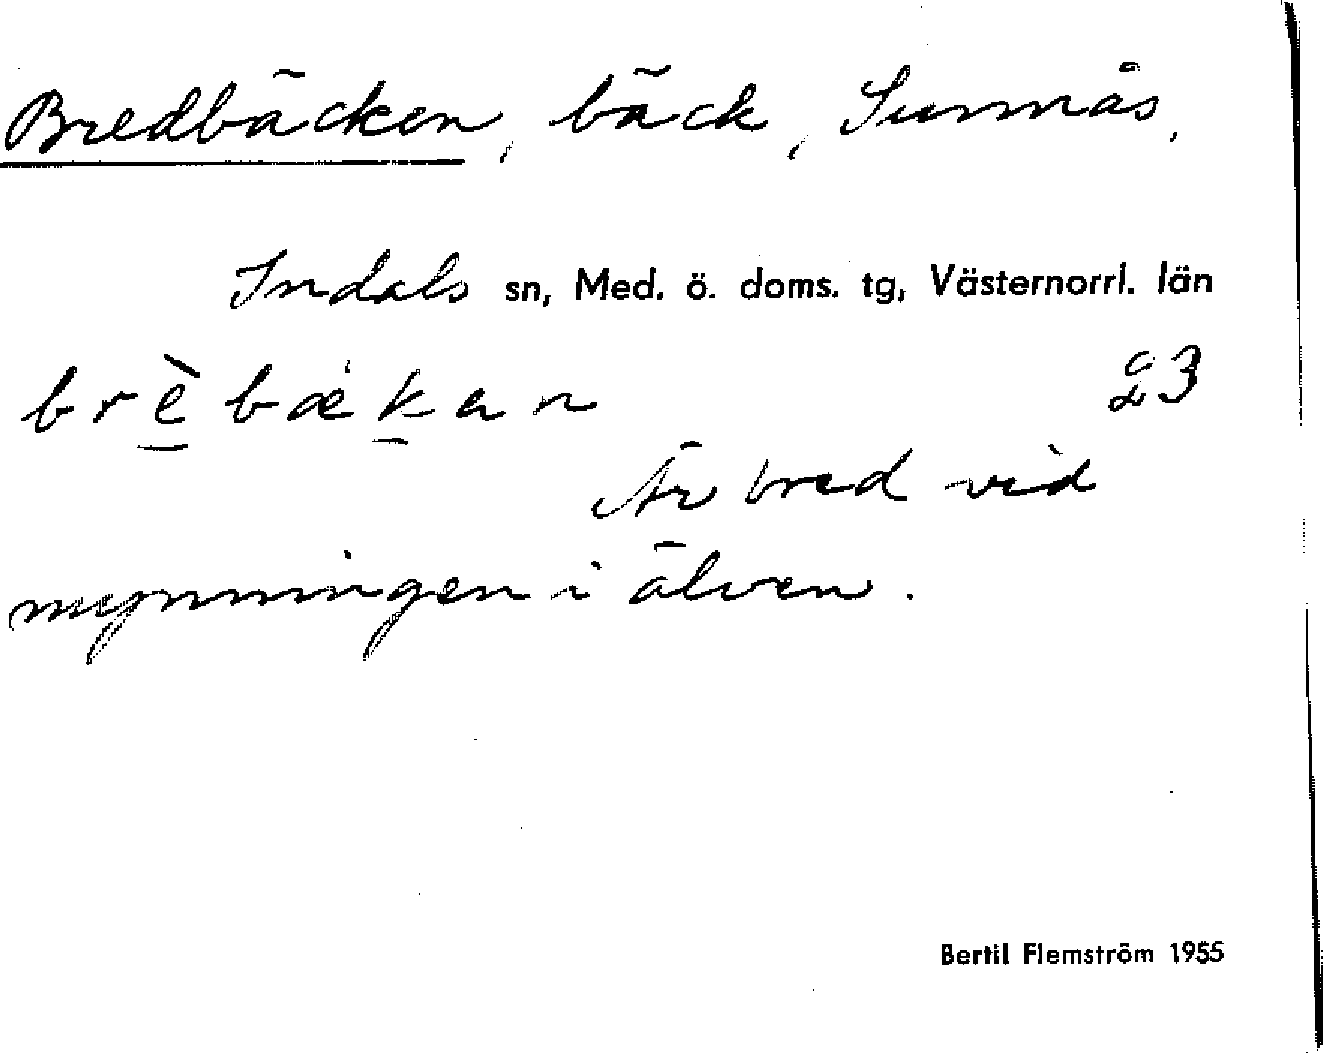 Bredbäcken, bäck, Sunnås,
Indals sn, Med. ö. doms. tg, Västernorrl. län
brèbækan 23
Är bred vid
mynningen i älven.
Bertil Flemström 1955